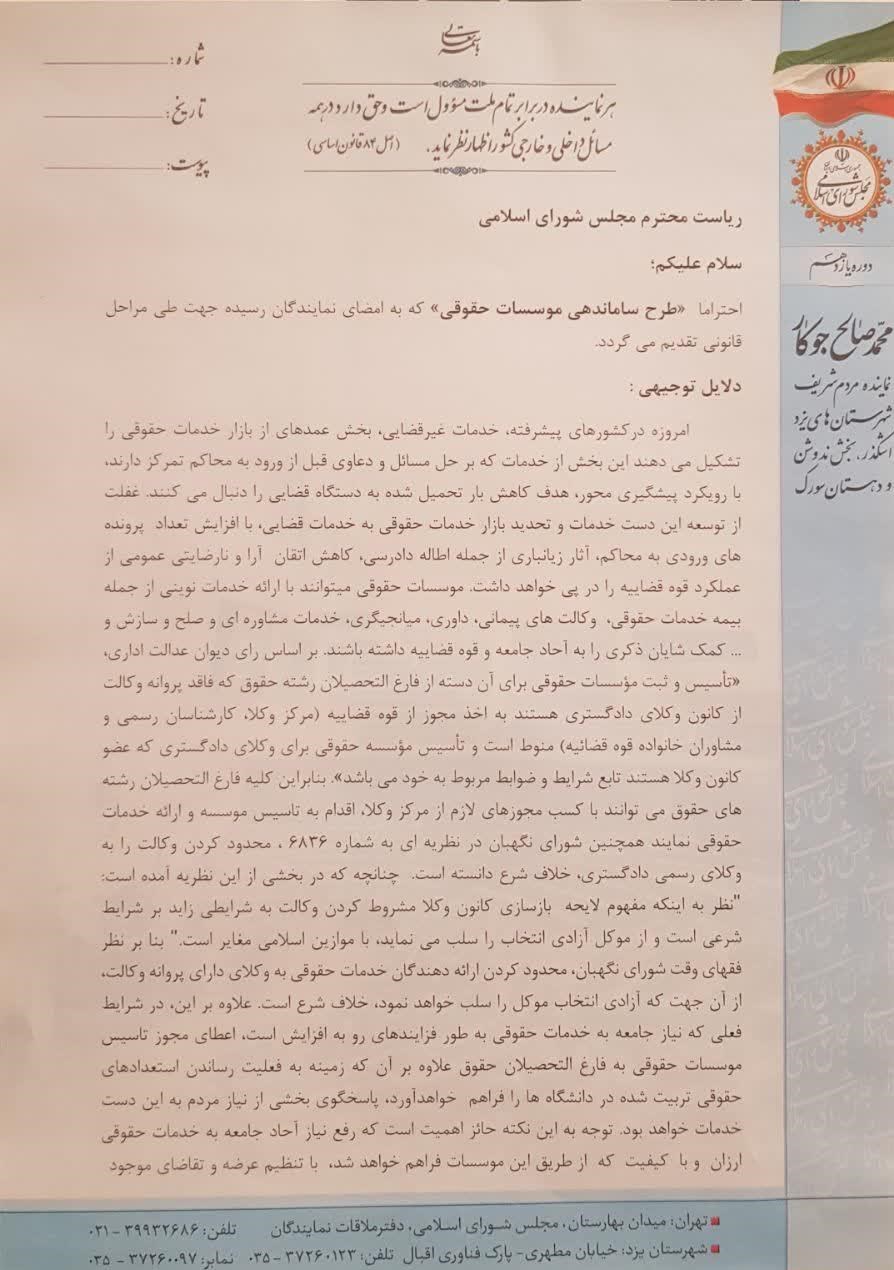 باسمه تعالی
شماره:
تاریخ:
پیوست:
هر نماینده در برابر تمام ملت مسؤول است و حق دارد در همه
مسائل داخلی و خارجی کشور اظهار نظر نماید. (اصل ۸۴ قانون اساسی)
مجلس شورای اسلامی
دوره یازدهم
محمد صالح جوکار
نماینده مردم شریف
شهرستان های یزد
اشکذر، بخش ندوشن
و دهستان سورک
ریاست محترم مجلس شورای اسلامی
سلام علیکم؛
احتراما «طرح ساماندهی موسسات حقوقی» که به امضای نمایندگان رسیده جهت طی مراحل
قانونی تقدیم می گردد.
دلایل توجیهی :
امروزه درکشورهای پیشرفته، خدمات غیرقضایی، بخش عمدهای از بازار خدمات حقوقی را
تشکیل می دهند این بخش از خدمات که بر حل مسائل و دعاوی قبل از ورود به محاکم تمرکز دارند،
با رویکرد پیشگیری محور، هدف کاهش بار تحمیل شده به دستگاه قضایی را دنبال می کنند. غفلت
از توسعه این دست خدمات و تحدید بازار خدمات حقوقی به خدمات قضایی، با افزایش تعداد پرونده
های ورودی به محاکم، آثار زیانباری از جمله اطاله دادرسی، کاهش اتقان آرا و نارضایتی عمومی از
عملکرد قوه قضاییه را در پی خواهد داشت. موسسات حقوقی میتوانند با ارائه خدمات نوینی از جمله
بیمه خدمات حقوقی، وکالت های پیمانی، داوری، میانجیگری، خدمات مشاوره ای و صلح و سازش و
... کمک شایان ذکری را به آحاد جامعه و قوه قضاییه داشته باشند. بر اساس رای دیوان عدالت اداری،
«تأسیس و ثبت مؤسسات حقوقی برای آن دسته از فارغ التحصیلان رشته حقوق که فاقد پروانه وکالت
از کانون وکلای دادگستری هستند به اخذ مجوز از قوه قضاییه (مرکز وکلا، کارشناسان رسمی و
مشاوران خانواده قوه قضائیه) منوط است و تأسیس مؤسسه حقوقی برای وکلای دادگستری که عضو
کانون وکلا هستند تابع شرایط و ضوابط مربوط به خود می باشد». بنابراین کلیه فارغ التحصیلان رشته
های حقوق می توانند با کسب مجوزهای لازم از مرکز وکلا، اقدام به تاسیس موسسه و ارائه خدمات
حقوقی نمایند همچنین شورای نگهبان در نظریه ای به شماره ۶۸۳۶ ، محدود کردن وکالت را به
وکلای رسمی دادگستری، خلاف شرع دانسته است. چنانچه که در بخشی از این نظریه آمده است:
"نظر به اینکه مفهوم لایحه بازسازی کانون وکلا مشروط کردن وکالت به شرایطی زاید بر شرایط
شرعی است و از موکل آزادی انتخاب را سلب می نماید، با موازین اسلامی مغایر است." بنا بر نظر
فقهای وقت شورای نگهبان، محدود کردن ارائه دهندگان خدمات حقوقی به وکلای دارای پروانه وکالت،
از آن جهت که آزادی انتخاب موکل را سلب خواهد نمود، خلاف شرع است. علاوه بر این، در شرایط
فعلی که نیاز جامعه به خدمات حقوقی به طور فزایندهای رو به افزایش است، اعطای مجوز تاسیس
موسسات حقوقی به فارغ التحصیلان حقوق علاوه بر آن که زمینه به فعلیت رساندن استعدادهای
حقوقی تربیت شده در دانشگاه ها را فراهم خواهدآورد، پاسخگوی بخشی از نیاز مردم به این دست
خدمات خواهد بود. توجه به این نکته حائز اهمیت است که رفع نیاز آحاد جامعه به خدمات حقوقی
ارزان و با کیفیت که از طریق این موسسات فراهم خواهد شد، با تنظیم عرضه و تقاضای موجود
تهران: میدان بهارستان، مجلس شورای اسلامی، دفترملاقات نمایندگان تلفن: ۳۹۹۳۲۶۸۶ - ۰۲۱
شهرستان یزد: خیابان مطهری- پارک فناوری اقبال تلفن: ۳۷۲۶۰۱۲۳ - ۰۳۵ نمابر: ۳۷۲۶۰۰۹۷ - ۰۳۵